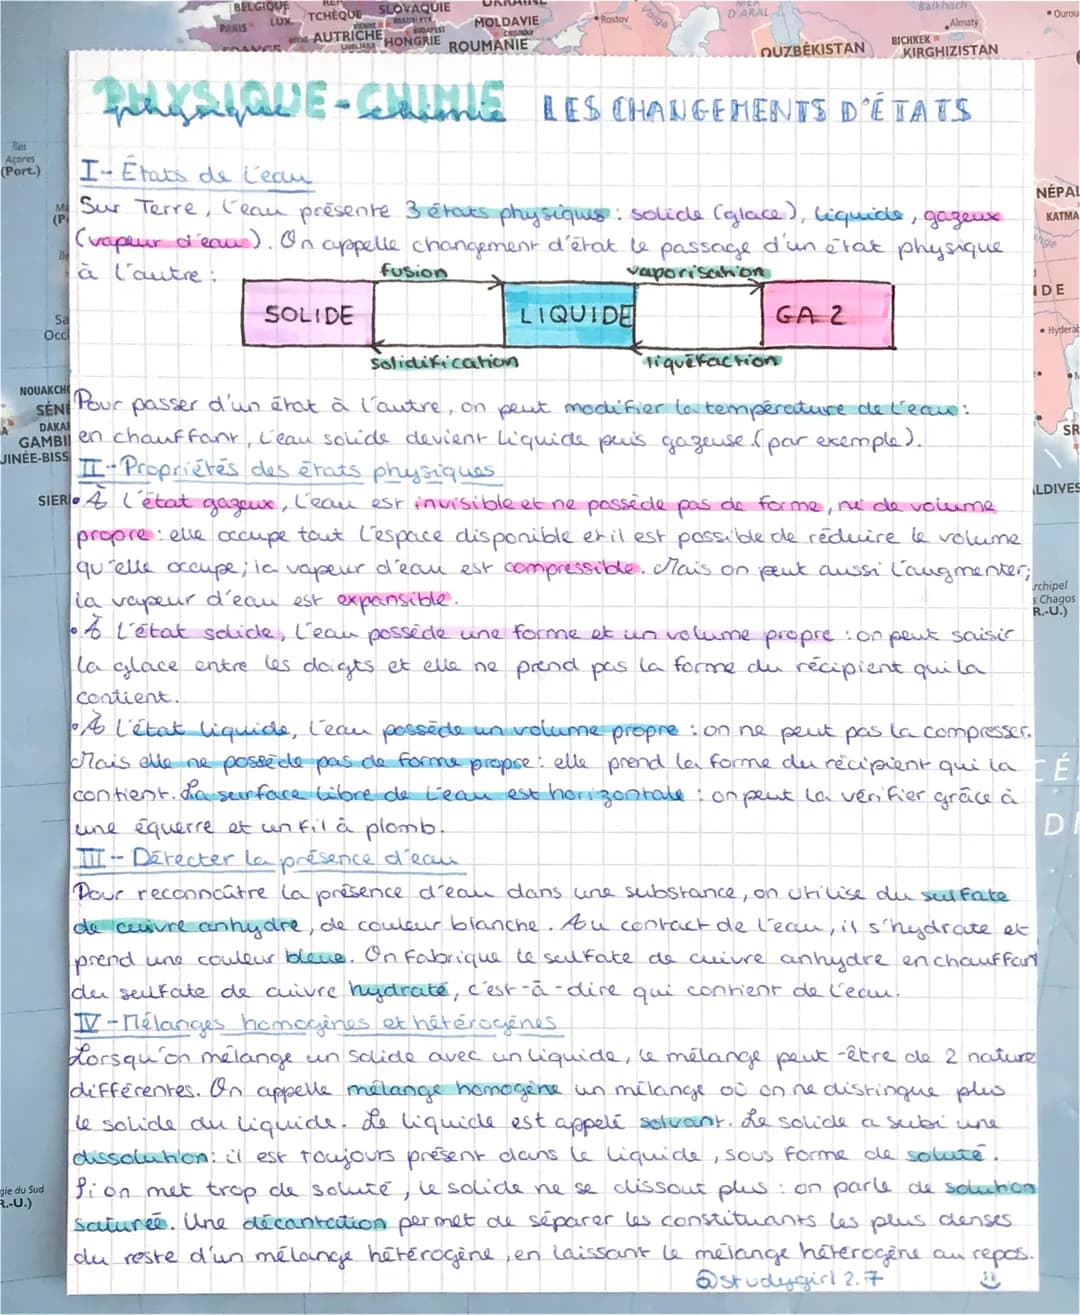 BELGIQUE
LUX.
PARIS
TCHÈQUE
SLOVAQUIE
AUTRICHE
HONGRIE
MOLDAVIE
ROUMANIE
Rostov
Volga
D'ARAL
OUZBÉKISTAN
Balkhach
Almaty
BICHKEK
KIRGHIZISTAN
PHYSIQUE-CHIMIE
physique chimie
LES CHANGEMENTS D'ÉTATS
Açores
(Port.)
NÉPAL
I- États de l'eau
Sur Terre, l'eau présente 3 états physiques : solide (glace), liquide, gazeux
(vapeur d'eau). On appelle changement d'état le passage d'un état physique
à l'autre :
fusion
vaporisation
SOLIDE
LIQUIDE
GAZ
solidification
liquéfaction
Pour passer d'un état à l'autre, on peut modifier la température de l'eau :
en chauffant, l'eau solide devient liquide puis gazeuse (par exemple).
II- Propriétés des états physiques
• À l'état gazeux, l'eau est invisible et ne possède pas de forme, ni de volume
propre : elle occupe tout l'espace disponible et il est possible de réduire le volume
qu'elle occupe; la vapeur d'eau est compressible. Mais on peut aussi l'augmenter;
la vapeur d'eau est expansible.
• À l'état solide, l'eau possède une forme et un volume propre : on peut saisir
la glace entre les doigts et elle ne prend pas la forme du récipient qui la
contient.
• À l'état liquide, l'eau possède un volume propre : on ne peut pas la compresser.
Mais elle ne possède pas de forme propre : elle prend la forme du récipient qui la
contient. La surface libre de l'eau est horizontale : on peut la vérifier grâce à
une équerre et un fil à plomb.
III- Détecter la présence d'eau
Pour reconnaître la présence d'eau dans une substance, on utilise du sulfate
de cuivre anhydre, de couleur blanche. Au contact de l'eau, il s'hydrate et
prend une couleur bleue. On fabrique le sulfate de cuivre anhydre en chauffant
du sulfate de cuivre hydraté, c'est-à-dire qui contient de l'eau.
IV- Mélanges homogènes et hétérogènes
Lorsqu'on mélange un solide avec un liquide, le mélange peut-être de 2 nature
différentes. On appelle mélange homogène un mélange où on ne distingue plus
le solide du liquide. Le liquide est appelé solvant. Le solide a subi une
dissolution: il est toujours présent dans le liquide, sous forme de soluté.
Si on met trop de soluté, le solide ne se dissout plus : on parle de solution
saturée. Une décantation permet de séparer les constituants les plus denses
du reste d'un mélange hétérogène, en laissant le mélange hétérogène au repos.
@studygirl2.7